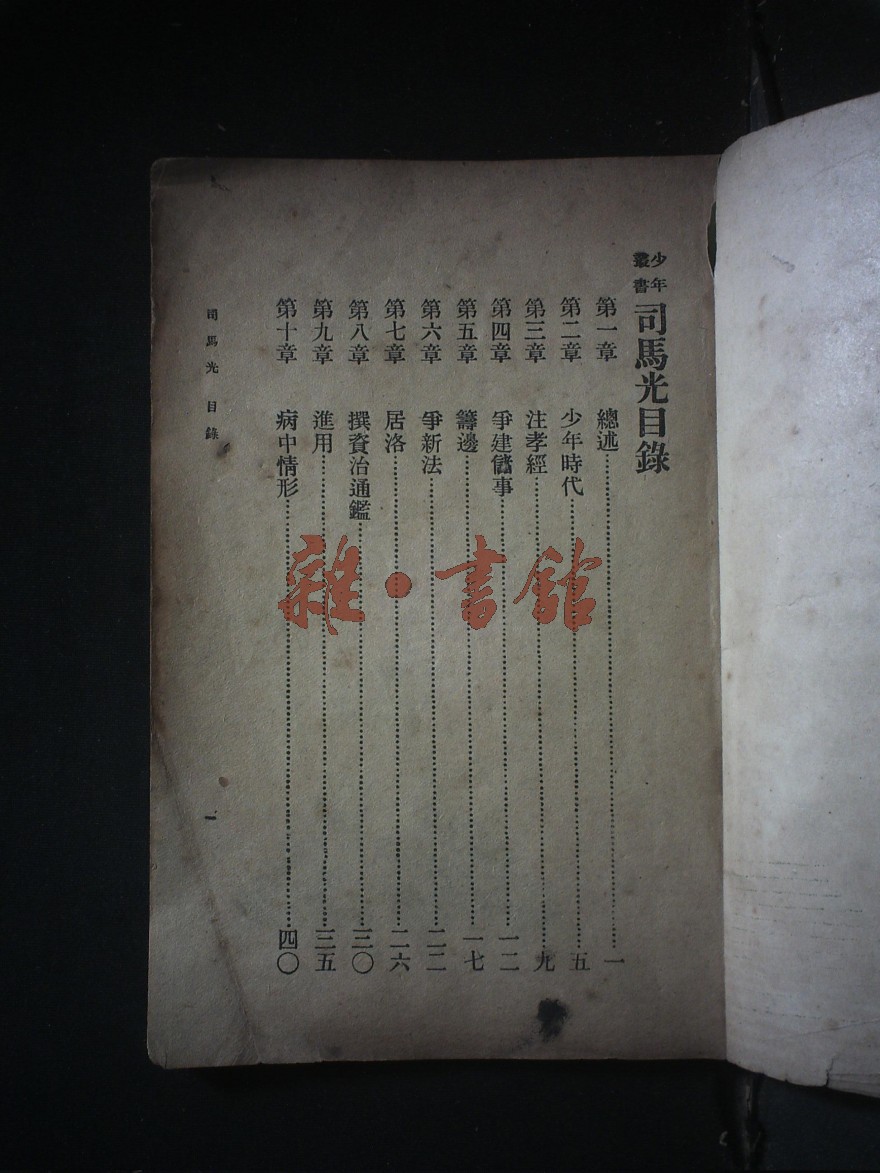 少年叢書 司馬光目錄
第一章 總述……一
第二章 少年時代……五
第三章 注孝經……九
第四章 爭建儲事……一二
第五章 籌邊……一七
第六章 爭新法……二二
第七章 居洛……二六
第八章 撰資治通鑑……三〇
第九章 進用……三五
第十章 病中情形……四〇
司馬光 目錄 一
雜·書館